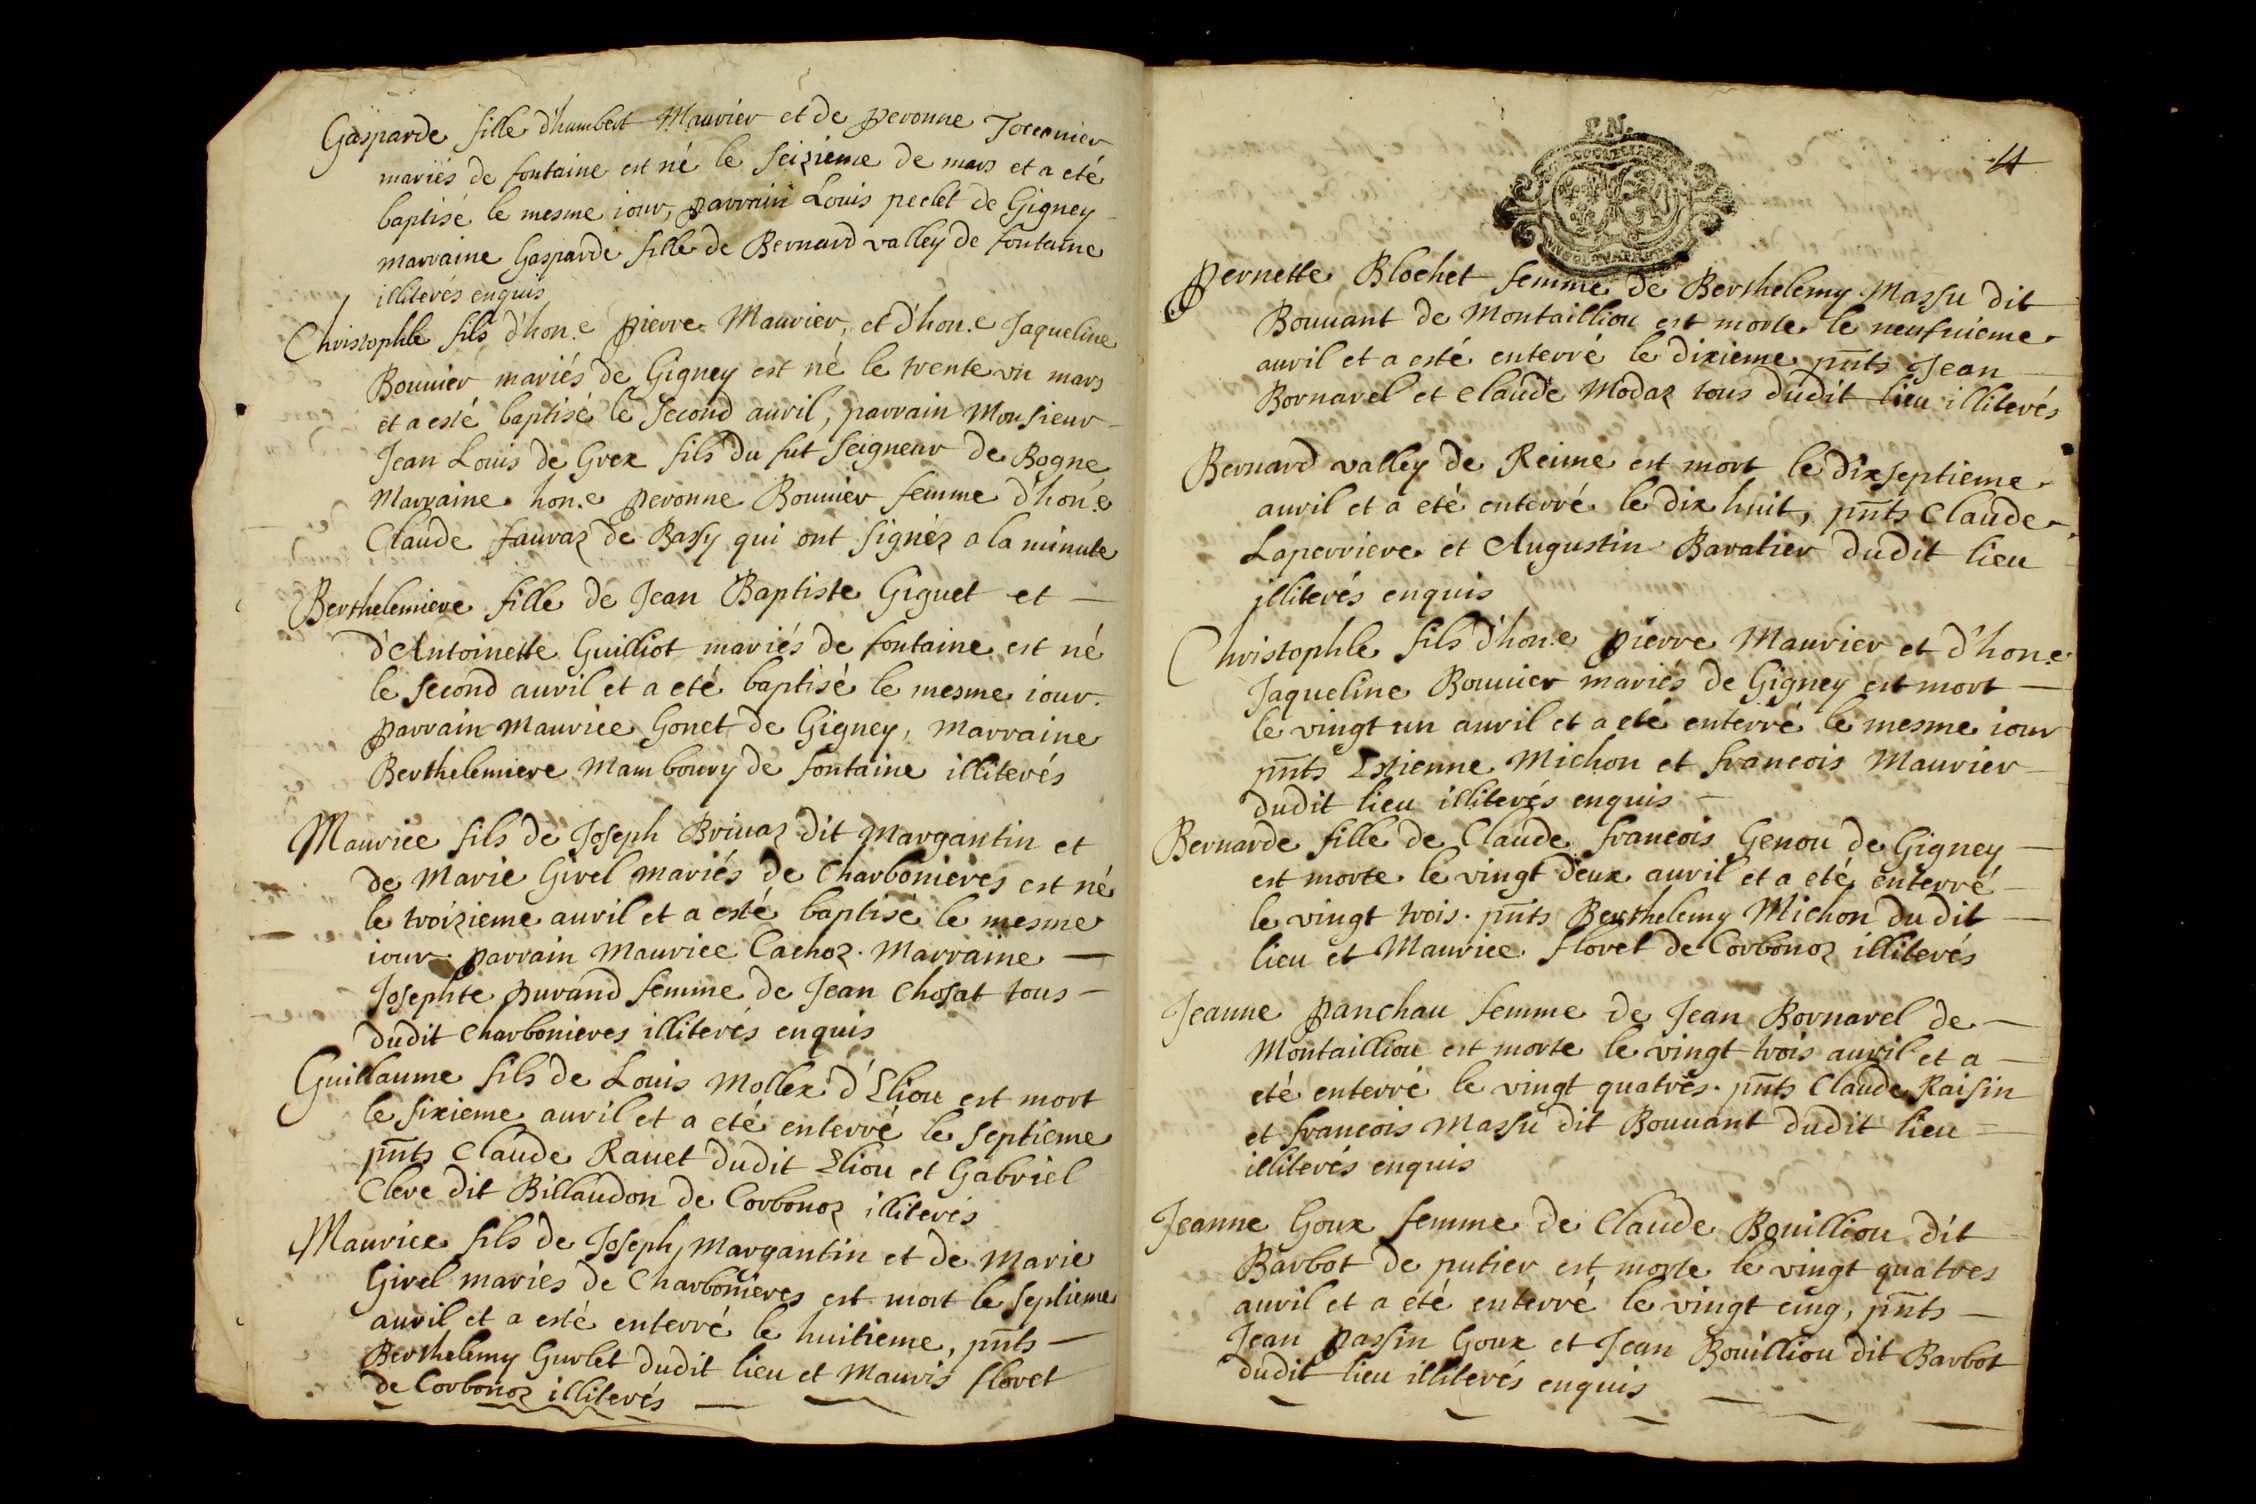 Gasparde fille d'humbert Maurier et de peronne Toccanier
mariés de fontaine est né le seizieme de mars et a eté
baptisé le mesme iour, parrain Louis peclet de Gigney
marraine Gasparde fille de Bernard valley de fontaine
illiterés enquis
Christophle fils d'hon.e pierre Maurier, et d'hon.e Jaqueline
Bouuier mariés de Gigney est né le trente vn mars
et a esté baptisé le second auril, parrain Monsieur
Jean Louis de Grex fils du fut seigneur de Bogne
Marraine hon.e peronne Bouuier femme d'hon.e
Claude fauraz de Bassy qui ont signéz a la minute
Berthelemiere fille de Jean Baptiste Giguet et
d'Antoinette Guilliot mariés de fontaine est né
le second auril et a eté baptisé le mesme iour.
parrain Maurice Gonet de Gigney, marraine
Berthelemiere Mamboury de fontaine illiterés
Maurice fils de Joseph Briuaz dit Margantin et
de Marie Girel mariés de Charbonieres est né
le troizieme auril et a esté baptisé le mesme
iour parrain Maurice Cachoz. Marraine
Josephte purand femme de Jean Chosat tous
dudit Charbonieres illiterés enquis
Guillaume fils de Louis Mollex d'Eliou est mort
le sixieme auril et a eté enterré le septieme
pnts Claude Rauet dudit Eliou et Gabriel
Clere dit Billaudon de Corbonoz illiterés
Maurice fils de Joseph Margantin et de Marie
Girel mariés de Charbonieres est mort le septieme
auril et a esté enterré le huitieme, pnts
Berthelemy Gurlet dudit lieu et Mauris floret
de Corbonoz illiterés
P.N.
4
Pernette Blochet femme de Berthelemy Massu dit
Bouuant de Montailliou est morte le neufuieme
auril et a esté enterré le dixieme pnts Jean
Bornarel et Claude Modaz tous dudit lieu illiterés
Bernard valley de Reime est mort le dixseptieme
auril et a eté enterré le dix huit, pnts Claude
Laperriere et Augustin Baratier dudit lieu
illiterés enquis
Christophle fils d'hon.e pierre Maurier et d'hon.e
Jaqueline Bouuier mariés de Gigney est mort
le vingt un auril et a eté enterré le mesme iour
pnts Estienne Michon et francois Maurier
dudit lieu illiterés enquis
Bernarde fille de Claude francois Genou de Gigney
est morte le vingt deux auril et a eté enterré
le vingt trois. pnts Berthelemy Michon du dit
lieu et Maurice floret de Corbonoz illiterés
Jeanne panchau femme de Jean Bornarel de
Montailliou est morte le vingt trois auril et a
eté enterré le vingt quatres. pnts Claude Raisin
et francois Massu dit Bouuant dudit lieu
illiterés enquis
Jeanne Goux femme de Claude Bouilliou dit
Barbot de putier est morte le vingt quatres
auril et a été enterré le vingt cinq, pnts
Jean passin Goux et Jean Bouilliou dit Barbot
dudit lieu illiterés enquis